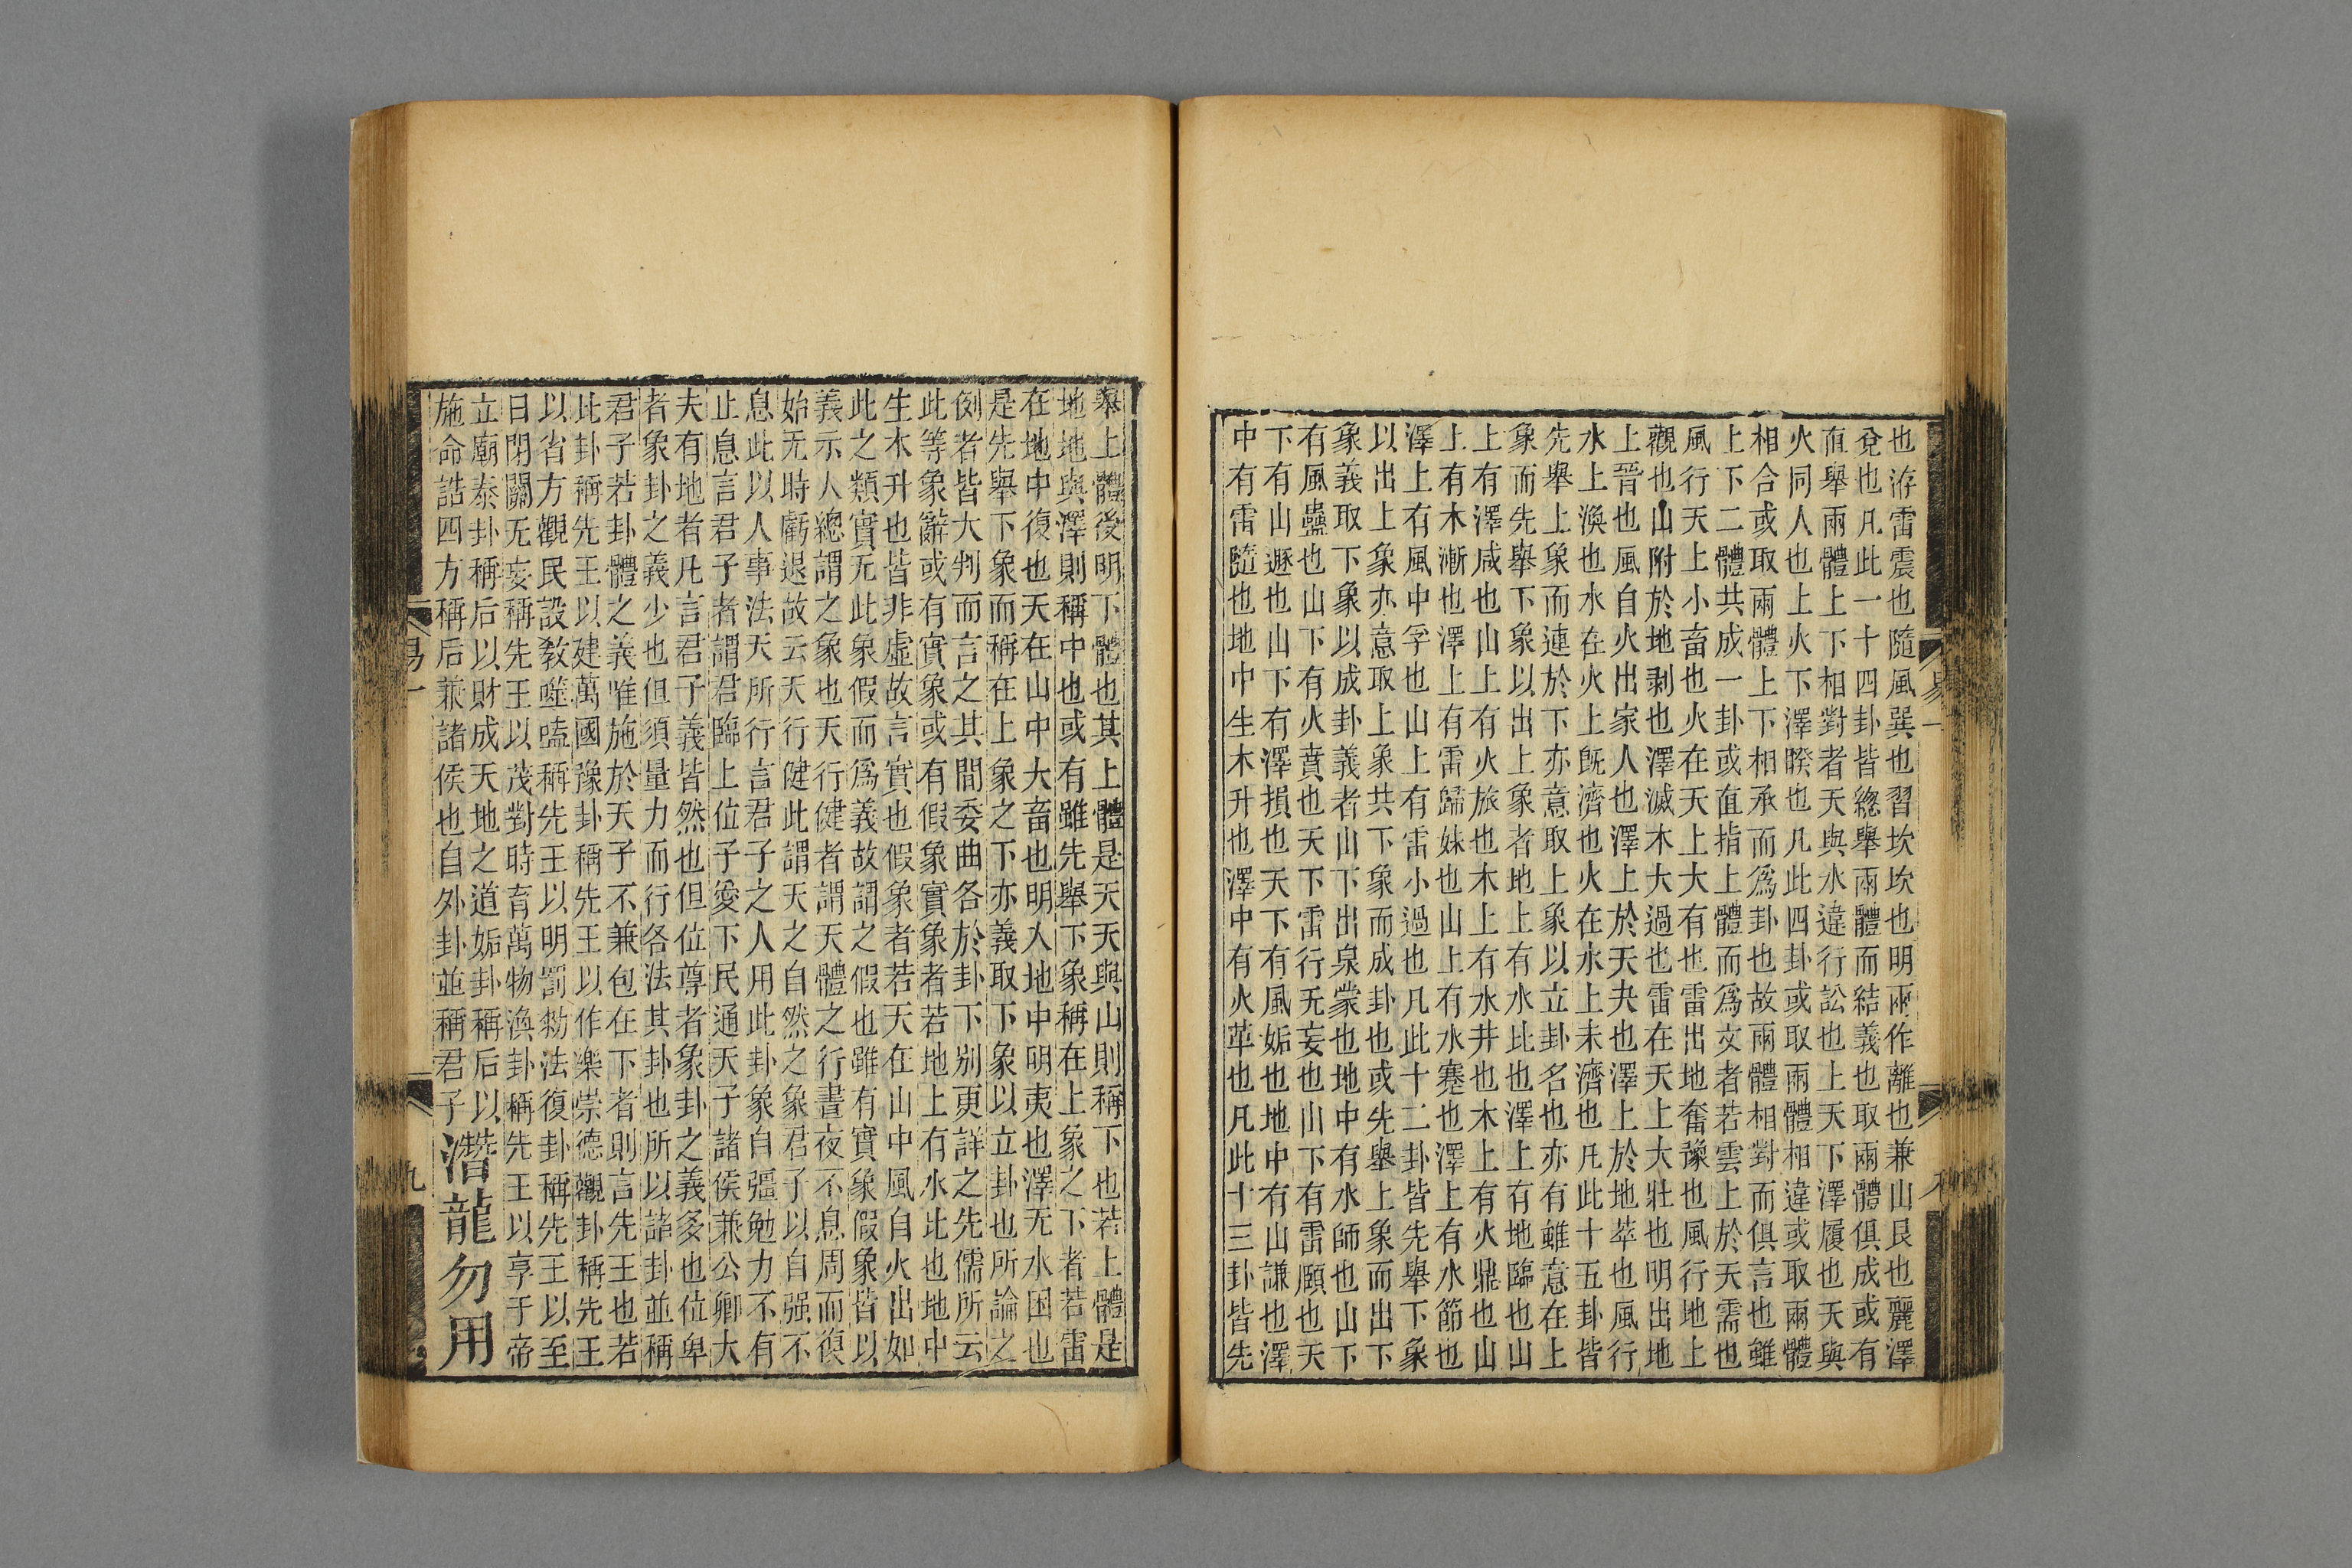 也洊雷震也隨風巽也習坎坎也明兩作離也兼山艮也麗澤
兌也凡此一十四卦皆緫舉兩體而結義也取兩體俱成或有
直舉兩體上下相對者天與水違行訟也上天下澤履也天與
火同人也上火下澤睽也凡此四卦或取兩體相違或取兩體
相合或取兩體上下相承而爲卦也故兩體相對而俱言也雖
上下二體共成一卦或直指上體而爲文者若雲上於天需也
風行天上小畜也火在天上大有也雷出地奮豫也風行地上
觀也山附於地剥也澤滅木大過也雷在天上大壯也明出地
上晉也風自火出家人也澤上於天夬也澤上於地萃也風行
水上渙也水在火上旣濟也火在水上未濟也凡此十五卦皆
先舉上象而連於下亦意取上象以立卦名也亦有雖意在上
象而先舉下象以出上象者地上有水比也澤上有地臨也山
上有澤咸也山上有火旅也木上有水井也木上有火鼎也山
上有木漸也澤上有雷歸妹也山上有水蹇也澤上有水節也
澤上有風中孚也山上有雷小過也凡此十二卦皆先舉下象
以出上象亦意取上象共下象而成卦也或先舉上象而出下
象義取下象以成卦義者山下出泉蒙也地中有水師也山下
有風蠱也山下有火賁也天下雷行无妄也山下有雷頤也天
下有山遯也山下有澤損也天下有風姤也地中有山謙也澤
中有雷隨也地中生木升也澤中有火革也凡此十三卦皆先
舉上體後明下體也其上體是天天與山則稱下也若上體是
地地與澤則稱中也或有雖先舉下象稱在上象之下者若雷
在地中復也天在山中大畜也明入地中明夷也澤无水困也
是先舉下象而稱在上象之下亦義取下象以立卦也所論之
例者皆大判而言之其間委曲各於卦下别更詳之先儒所云
此等象辭或有實象或有假象實象者若地上有水比也地中
生木升也皆非虛故言實也假象者若天在山中風自火出如
此之類實无此象假而爲義故謂之假也雖有實象假象皆以
義示人總謂之象也天行健者謂天體之行晝夜不息周而復
始无時虧退故云天行健此謂天之自然之象君子以自强不
息此以人事法天所行言君子之人用此卦象自彊勉力不有
止息言君子者謂君臨上位子愛下民通天子諸侯兼公卿大
夫有地者凡言君子義皆然也但位尊者象卦之義多也位卑
者象卦之義少也但須量力而行各法其卦也所以諸卦並稱
君子若卦體之義唯施於天子不兼包在下者則言先王也若
比卦稱先王以建萬國豫卦稱先王以作樂崇德觀卦稱先王
以省方觀民設敎噬嗑稱先王以明罰勑法復卦稱先王以至
日閉關无妄稱先王以茂對時育萬物渙卦稱先王以享于帝
立廟泰卦稱后以財成天地之道姤卦稱后以
施命誥四方稱后兼諸侯也自外卦並稱君子潛龍勿用
易一
九